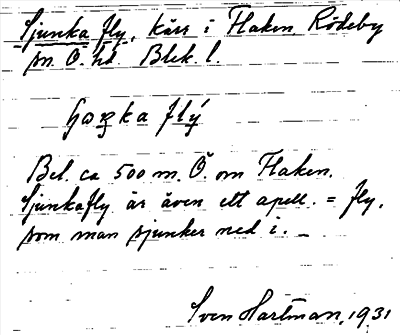 Sjunka fly, kärr i Flaken, Rödeby
sn. Ö. hd. Blek. l.
Bel. ca 500 m. Ö. om Flaken.
Sjunkafly är även ett apell. = fly,
som man sjunker ned i. –
Sven Hartman, 1931